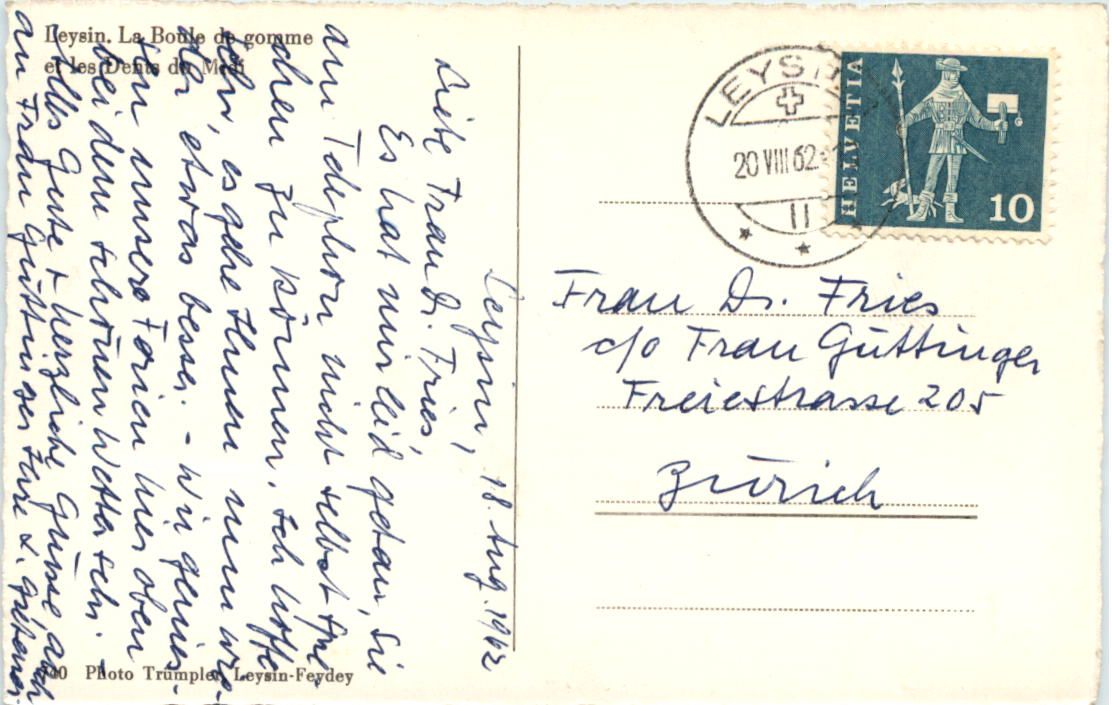 Leysin. La Boule de gomme
et les Dents du Midi
Leysin, 18. Aug. 1962
Liebe Frau Dr. Fries,
Es hat mir leid getan, Sie
am Telephon nicht selbst spre-
chen zu können. Ich hoffe
sehr, es gehe Ihnen nun wie-
der etwas besser. - Wir genies-
sen unsere Ferien hier oben
bei dem schönen Wetter sehr.
Alles Gute + herzliche Grüsse auch
an Frau Güttinger Ihre
740 Photo Trümpler, Leysin-Feydey
LEYSIN
20 VIII 62
HELVETIA
10
Frau Dr. Fries
c/o Frau Güttinger
Freiestrasse 205
Zürich